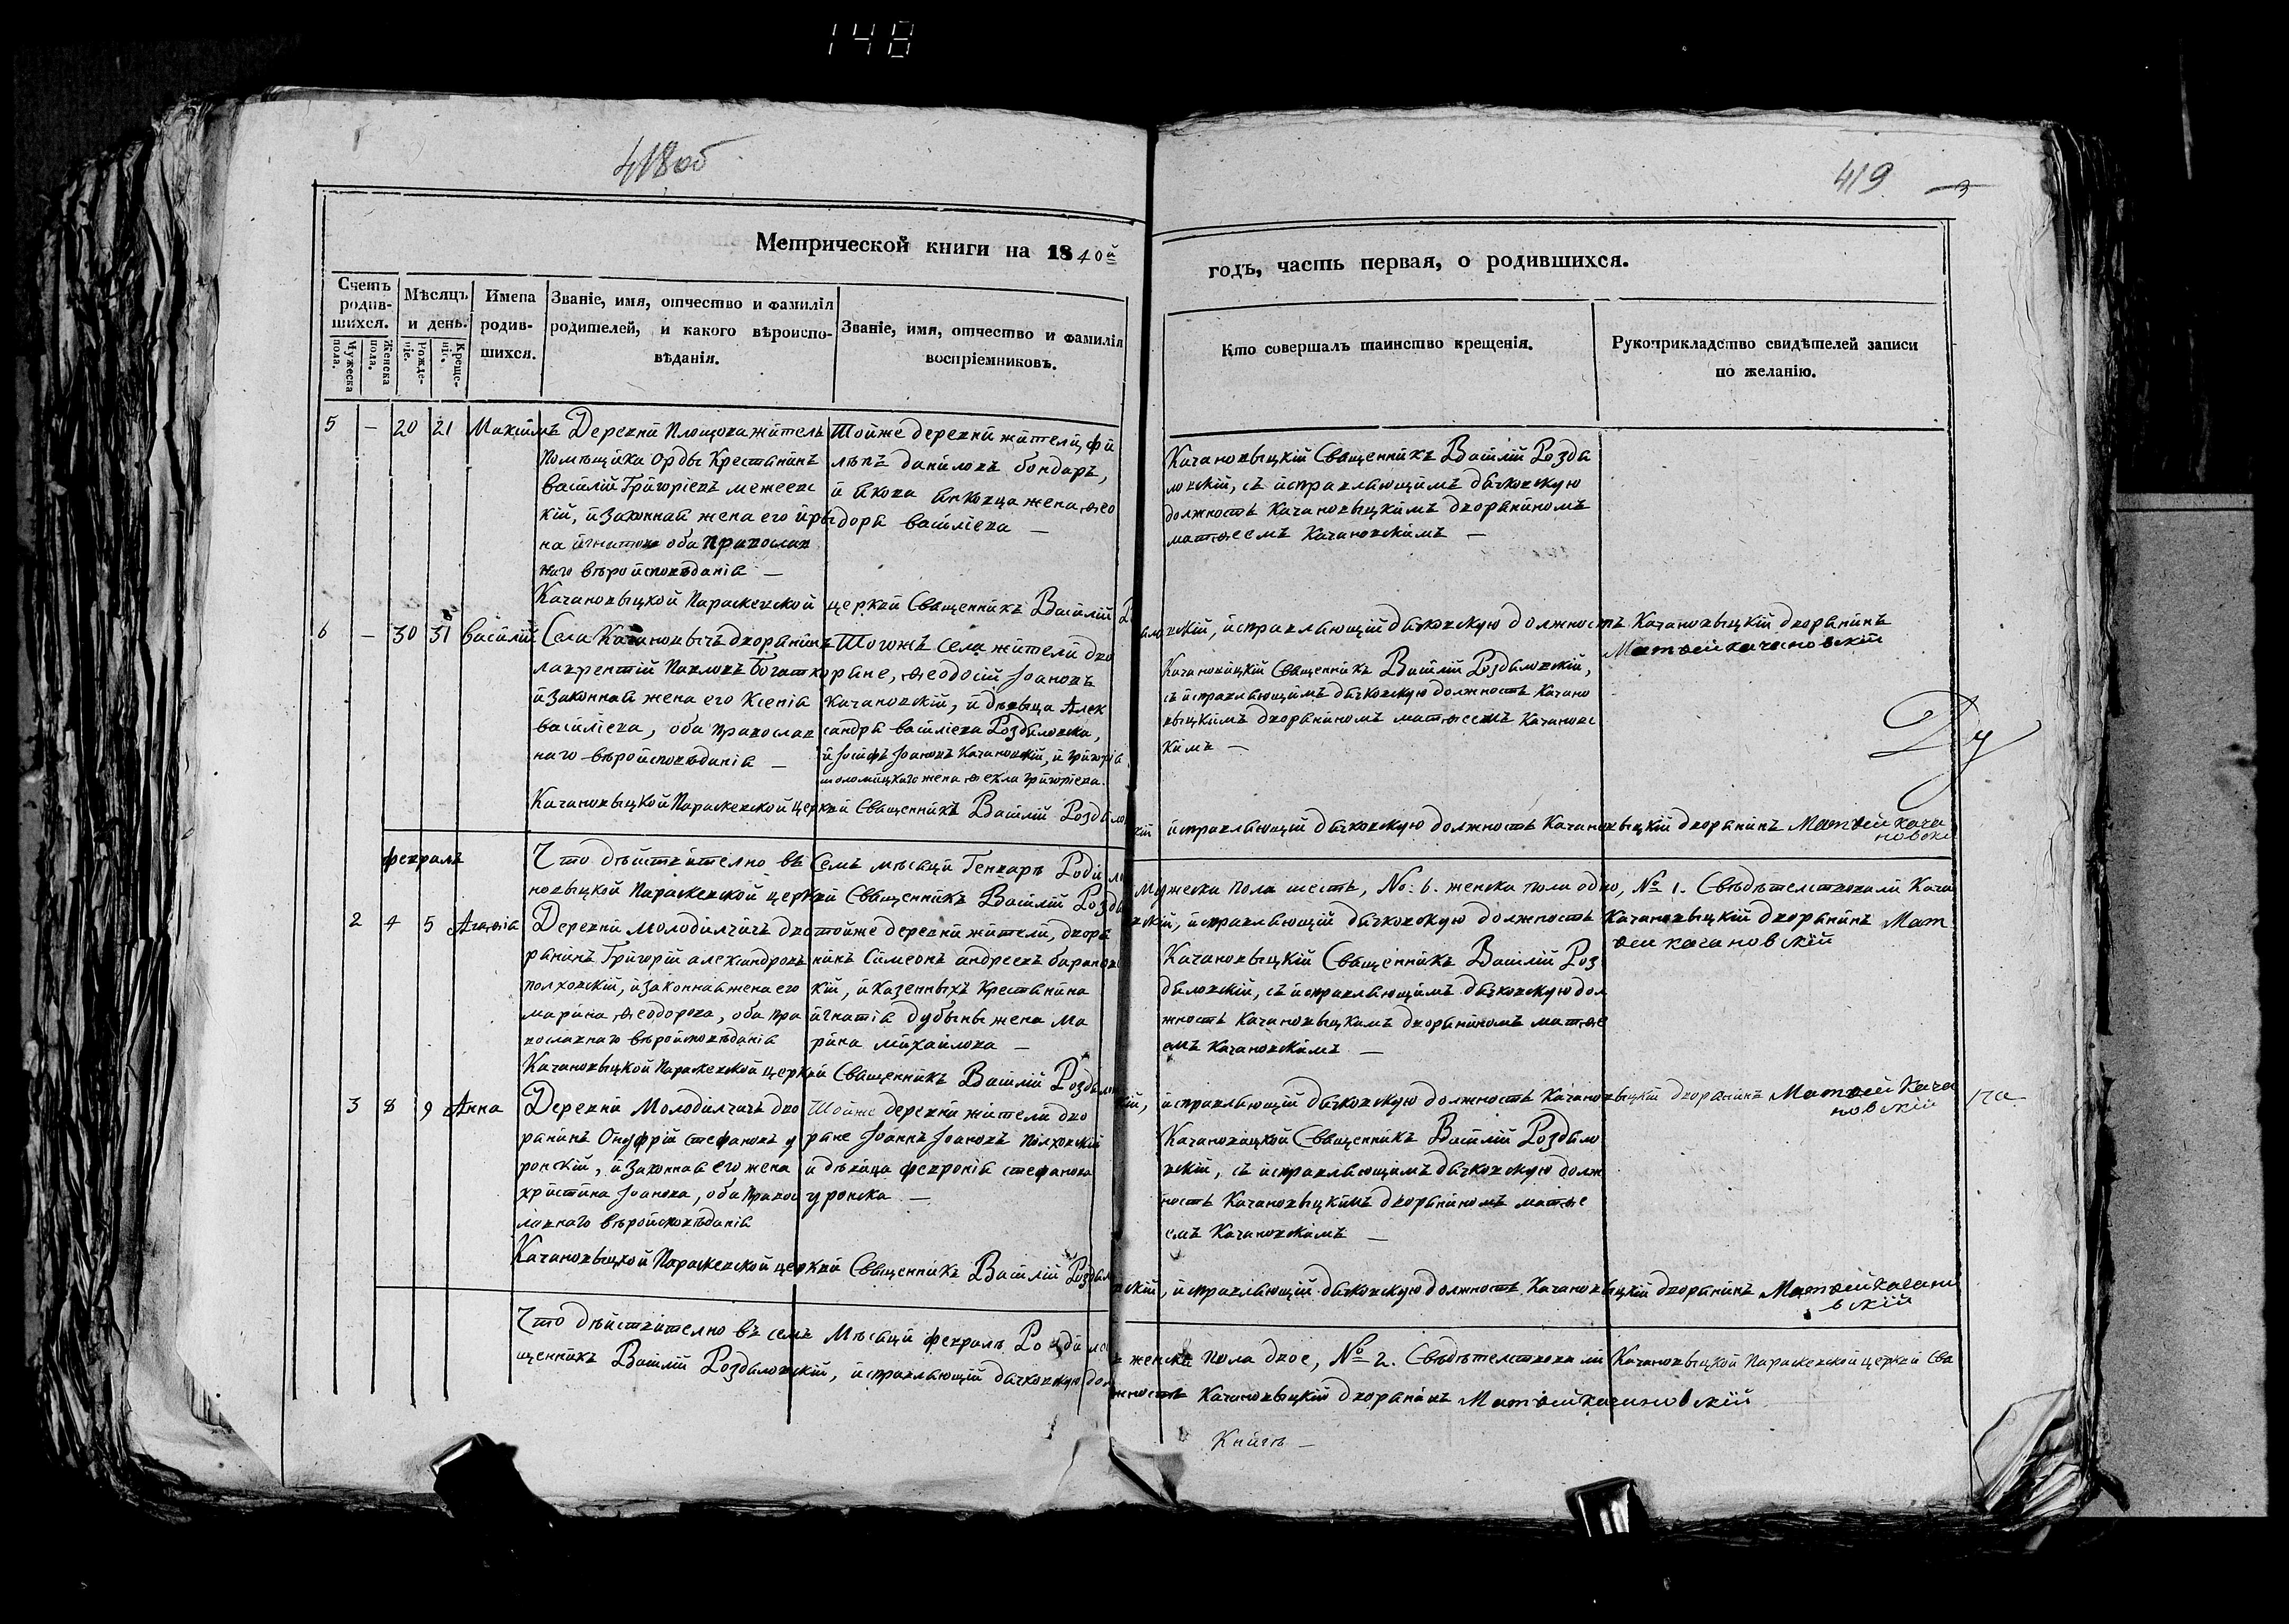 148
418об
419
Метрической книги на 1840й
годъ, часть первая, о родившихся.
Счетъ родившихся.
Мужеска пола.
Женска пола.
Мѣсяцъ и день.
Рожденіе.
Крещеніе.
Имена родившихся.
Званіе, имя, отчество и фамилія родителей, и какого вѣроисповѣданія.
Званіе, имя, отчество и фамилія воспріемниковъ.
Кто совершалъ таинство крещенія.
Рукоприкладство свидѣтелей записи по желанію.
5 — 20 21 Максимъ
Деревни Площова житель
помѣщика Орды Крестянинъ
василій Григоріевъ межеевс
кій, и законная жена его ири
на игнатова оба Православ
наго вѣроисповѣданія —
Тойже деревни жители, фи
липъ даниловъ бондаръ,
и якова янковца жена ѳео
дора василіева —
Качановыцкій Священникъ Василій Розда
ловскій, съ исправляющимъ дячковскую
должность Качановыцкимъ дворяниномъ
матѳеемъ Качановскимъ —
Качановыцкой Параскевской церкви Священникъ Василій
аловскій, исправляющій дячковскую должность Качановыцкій дворянинъ
Матѳей качановскій
6 — 30 31 василій
Села Качановычъ дворянинъ
лаврентій Павловъ Богатко
и законная жена его Ксенія
василіева, оба православ
наго вѣроисповѣданія —
Тогожъ Села жители дво
ряне, ѳеодосій Іоановъ
Качановскій, и дѣвыца Алек
сандра василіева Роздяловска,
и Іосифъ Іоановъ Качановскій, и Григорія
жена ѳекла Григоріева.
Качановицкій Священникъ Василій Роздяловскій,
съ исправляющимъ дячковскую должность Качано
выцкимъ дворяниномъ матѳеемъ Качановс
кимъ —
Качановыцкой Параскевской церкви Священникъ Василій Роздяло
кій исправляющій дячковскую должность Качановыцкій дворянинъ Матѳей кача
новскі
февраль
Что дѣйствително въ Семъ мѣсяци Генваръ Родило
мужеска пола шесть, №: 6. женска пола одно, № 1. Свѣдѣтелствовали Кача
новыцкой Параскевской церкви Священникъ Василій Розда
вскій, исправляющій дячковскую должность Качановыцкій дворянинъ Мат
ѳей качановскій
2 4 5 Агафія
Деревни Молодилчичъ дво
рянинъ Григорій александровъ
полховскій, и законная жена его
марина ѳеодорова, оба пра
вославнаго вѣроисповѣданія
тойже деревни жители, дворя
нинъ Симеонъ андреевъ баранов
кій, и казенныхъ крестянина
игнатія дубыны жена ма
рина михайлова —
Качановыцкій Священникъ Василій Роз
дяловскій, съ исправляющимъ дячковскую дол
жность Качановыцкимъ дворяниномъ матѳе
емъ Качановскимъ —
Качановыцкой Параскевской церкви Священникъ Василій Роздялов
кій, исправляющій дячковскую должность Качановыцкій дворянинъ Матѳей Кача
новскій
3 8 9 Анна
Деревни Молодилчичъ дво
рянинъ Онуфрій стефановъ у
ронскій, и законная его жена
христина Іоанова, оба правос
лавнаго вѣроисповѣданія
Тойже деревни жители дво
ряне Іоаннъ Іоановъ Полховскій
и дѣвица февронія стефанова
уронска —
Качановицкой Священникъ Василій Роздяло
вскій, съ исправляющимъ дячковскую долж
ность Качановыцкимъ дворяниномъ матѳе
емъ Качановскимъ —
Качановыцкой Параскевской церкви Священникъ Василій Роздял
вскій, исправляющій дячковскую должность Качановыцкій дворянинъ Матѳей качано
вскій
Что дѣйствително въ семъ Мѣсяци февраль Родилос
женска пола двое, № 2. Свѣдѣтелствовали Качановыцкой Параскевской церкви Свя
щенникъ Василій Роздяловскій, исправляющій дячковскую дол
жность Качановыцкій дворянинъ Матѳей качановскій